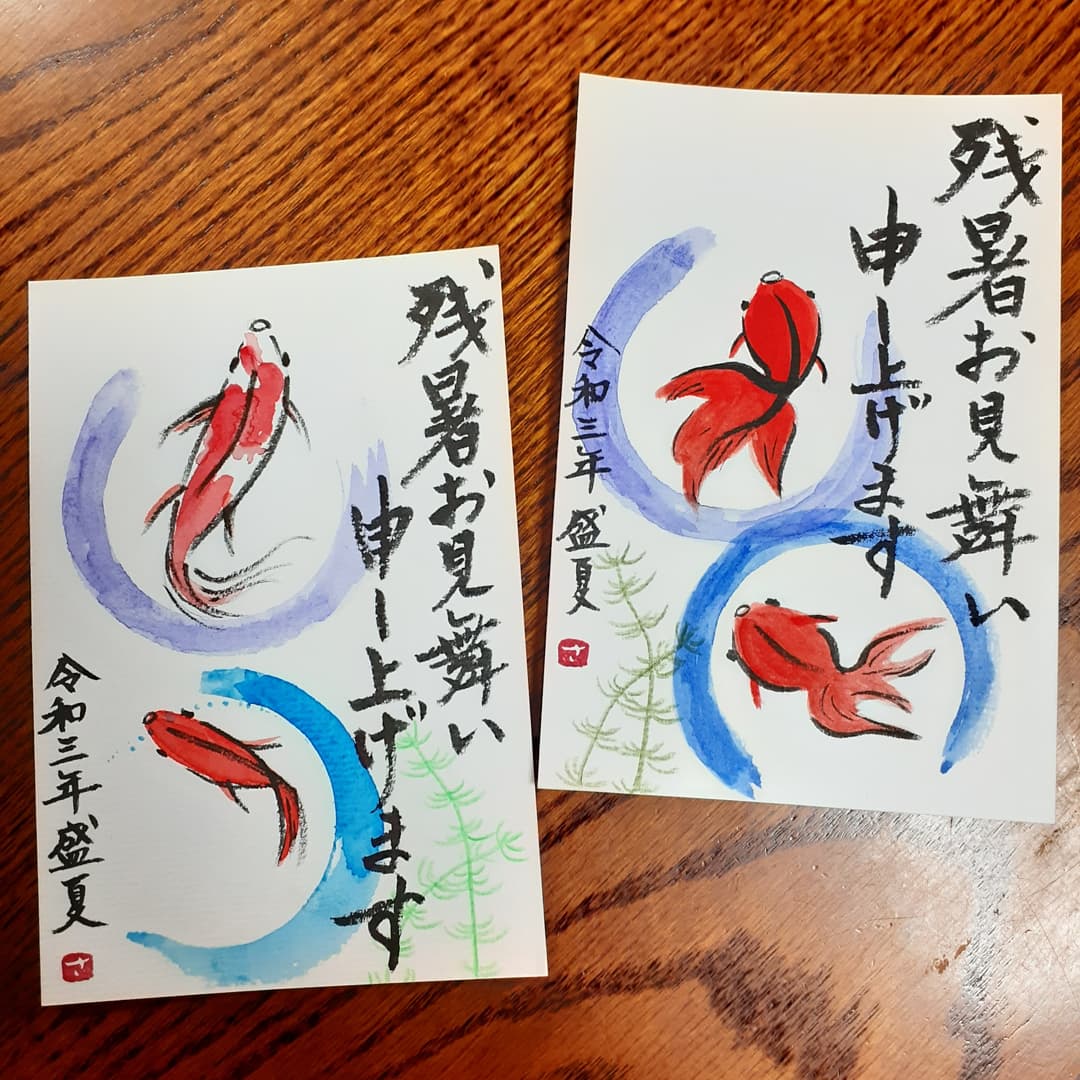 残暑お見舞い
申し上げます
令和三年盛夏
さ
残暑お見舞い
申し上げます
令和三年 盛夏
さ